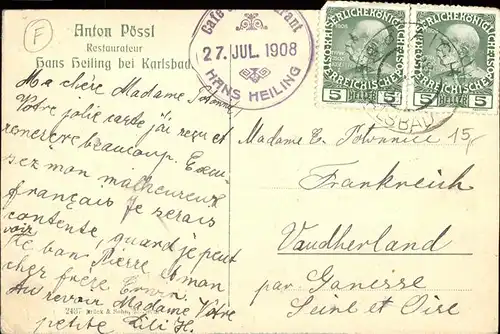 F
Anton Pössl
Restaurateur
Hans Heiling bei Karlsbad.
Café Restaurant
27. JUL. 1908
HANS HEILING
5 HELLER 5
5 HELLER 5
Ma chère Madame
Votre jolie carte j'ai reçu et
remercie beaucoup. Excu-
sez mon malheureux
français Je serais
contente, quand je peut
voir
le bon Pierre et mon
cher frère Erwin.
Au revoir Madame Votre
petite Lili H.
Madame E. Potonniée 15
Frankreich
Vaudherland
par Gonesse
Seine et Oise